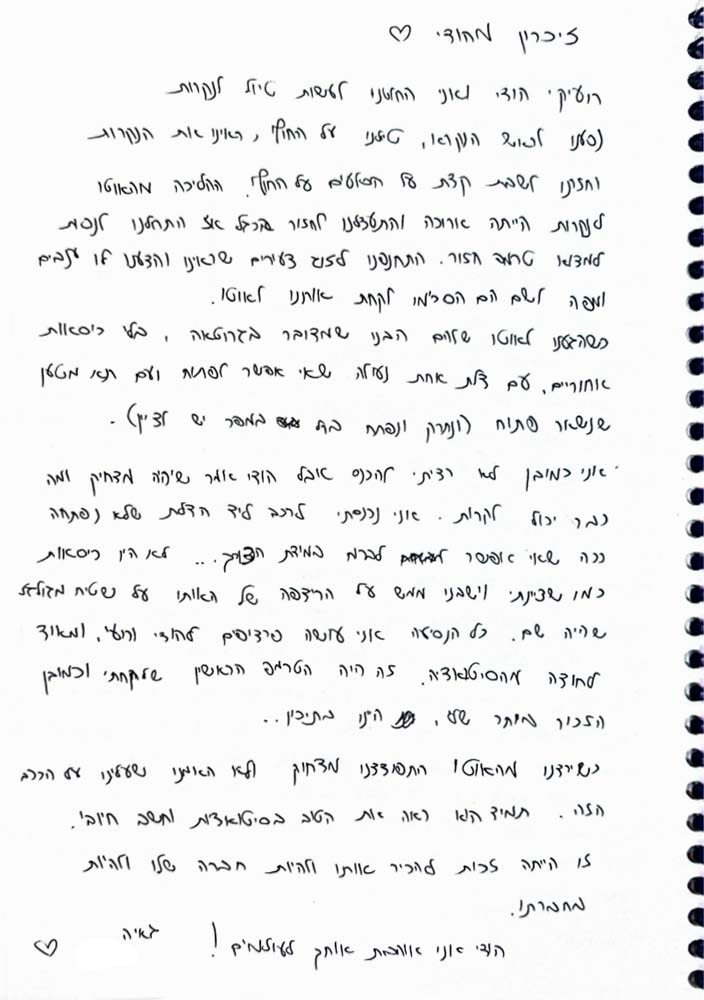 זיכרון מהודי ♡
רועיקי הודי ואני החלטנו לעשות טיול לנקרות
נסענו לראש הנקרא, טיילנו על החוף, ראינו את הנקרות
וחזרנו לשבת קצת על הסלעים על החוף. ההליכה מהאוטו
לנקרות הייתה ארוכה והתעצלנו לחזור ברגל אז התחלנו לנסות
למצוא טרמפ חזור. התחנפנו לזוג צעירים שראינו והצענו לו ענבים
ומפה לשם הם הסכימו לקחת אותנו לאוטו.
כשהגענו לאוטו שלהם הבנו שמדובר בגרוטאה, בלי כיסאות
אחוריים, עם דלת אחת נעולה שאי אפשר לפתוח ועם תא מטען
שנשאר פתוח (ונטרק ונפתח במספר יש לציין).
אני כמובן לא רציתי להכנס אבל הודי אמר שיהיה מצחיק ומה
כבר יכול לקרות. אני נכנסתי לרכב ליד הדלת שלא נפתחה
ככה שאי אפשר לברוח במידת הצורך... לא היו כיסאות
כמו שציינתי וישבנו ממש על הרצפה של האוטו על שטיח מגולגל
שהיה שם. כל הנסיעה אני עושה פרצופים להודי ורועי, ומאוד
לחוצה מהסיטואציה. זה היה הטרמפ הראשון שלקחתי וכמובן
הזכור ביותר שלי, היינו בתיכון..
כשירדנו מהאוטו התפוצצנו מצחוק ולא האמנו שעלינו על הרכב
הזה. תמיד הוא ראה את הטוב בסיטואציות וחשב חיובי.
זו הייתה זכות להכיר אותו ולהיות חברה שלו ולהיות
בחברתו.
הודי אני אוהבת אותך לעולמים! גאיה ♡